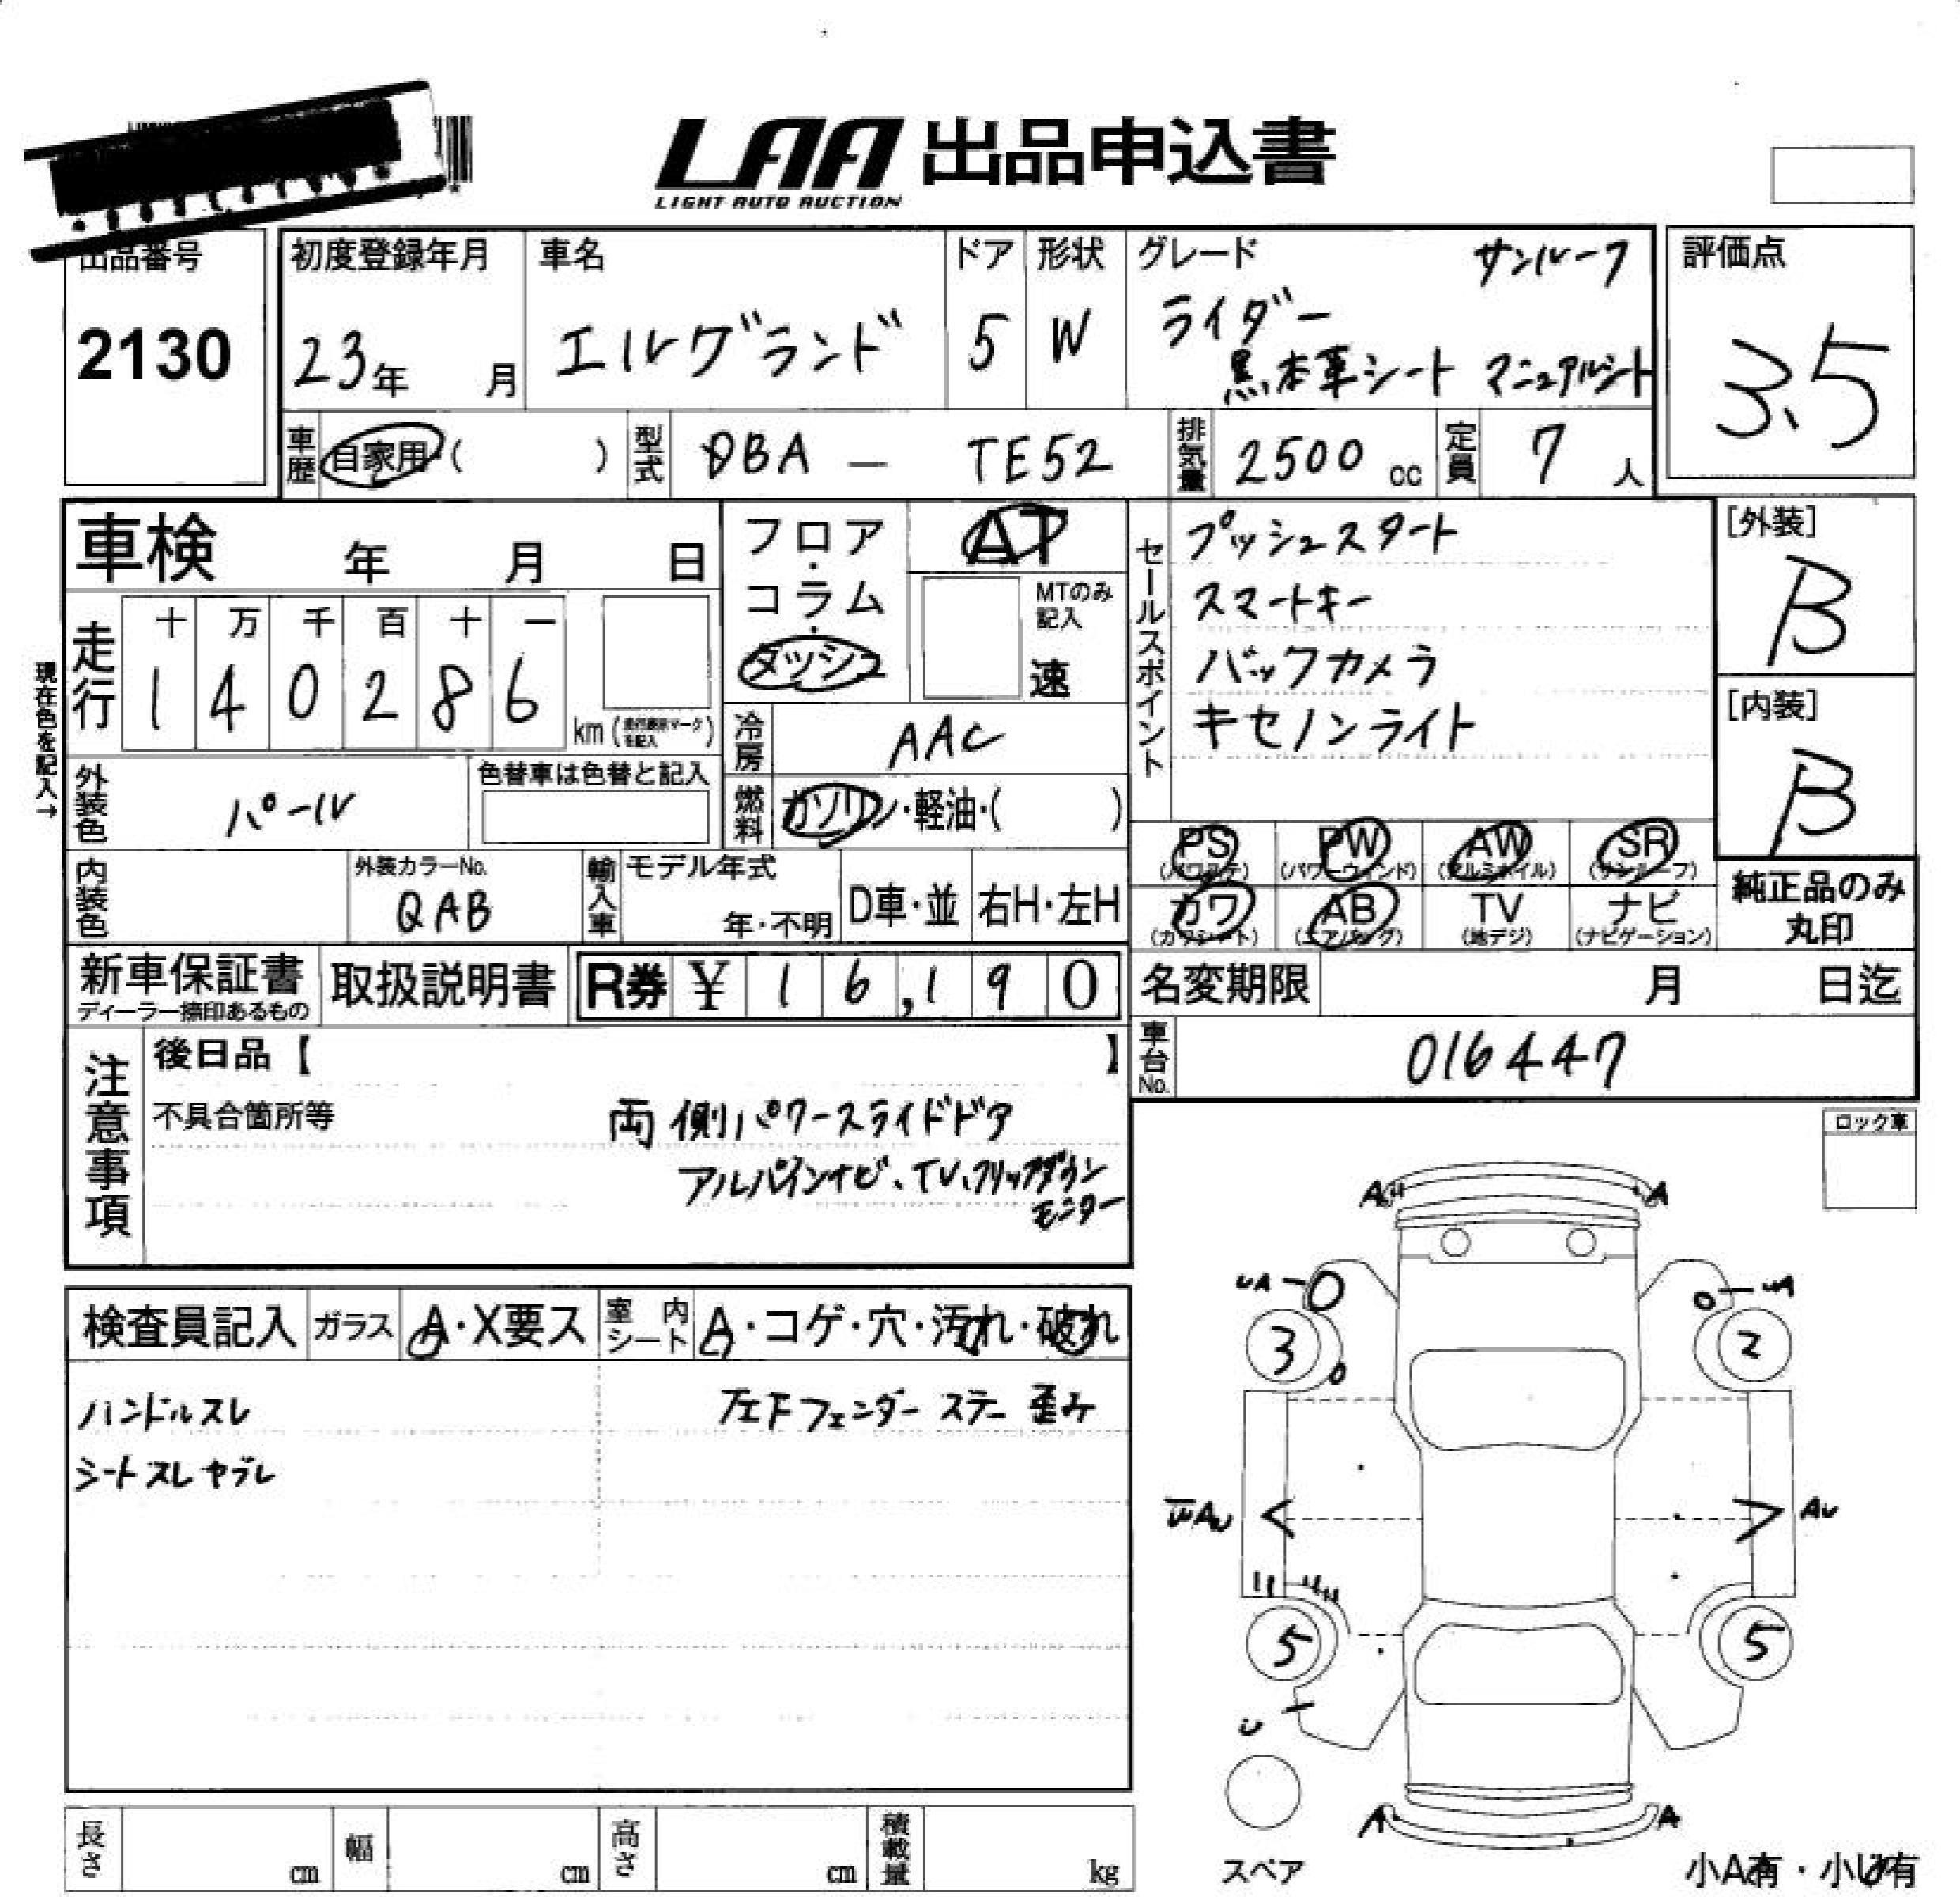 LAA 出品申込書
LIGHT AUTO AUCTION
出品番号
2130
初度登録年月
23年 月
車名
エルグランド
ドア
5
形状
W
グレード サンルーフ
ライダー
黒本革シート マニュアルシート
評価点
3.5
車歴 自家用 ( )
型式 DBA — TE52
排気量 2500 cc
定員 7 人
車検 年 月 日
フロア・コラム・ダッシュ
AT
MTのみ記入
速
現在色を記入→
走行
十 万 千 百 十 一
1 4 0 2 8 6
km (走行表示マークを記入)
冷房 AAC
外装色 パール
色替車は色替と記入
燃料 ガソリン・軽油・( )
内装色
外装カラーNo.
QAB
輸入車
モデル年式
年・不明
D車・並
右H・左H
セールスポイント
プッシュスタート
スマートキー
バックカメラ
キセノンライト
[外装]
B
[内装]
B
PS (パワステ)
PW (パワーウィンド)
AW (アルミホイル)
SR (サンルーフ)
カワ (カワシート)
AB (エアバッグ)
TV (地デジ)
ナビ (ナビゲーション)
純正品のみ
丸印
新車保証書
ディーラー捺印あるもの
取扱説明書
R券 ¥ 1 6,1 9 0
名変期限 月 日迄
車台No. 016447
注意事項
後日品【 】
不具合箇所等
両側パワースライドドア
アルパインナビ、TV、フリップダウン
モニター
ロック車
検査員記入
ガラス A・X要ス
室内シート A・コゲ・穴・汚れ・破れ
ハンドルスレ
シートスレヤブレ
左Fフェンダーステー歪み
A A
UA UA
3 2
AU
5 5
U
A A
スペア
小A有・小U有
長さ cm
幅 cm
高さ cm
積載量 kg